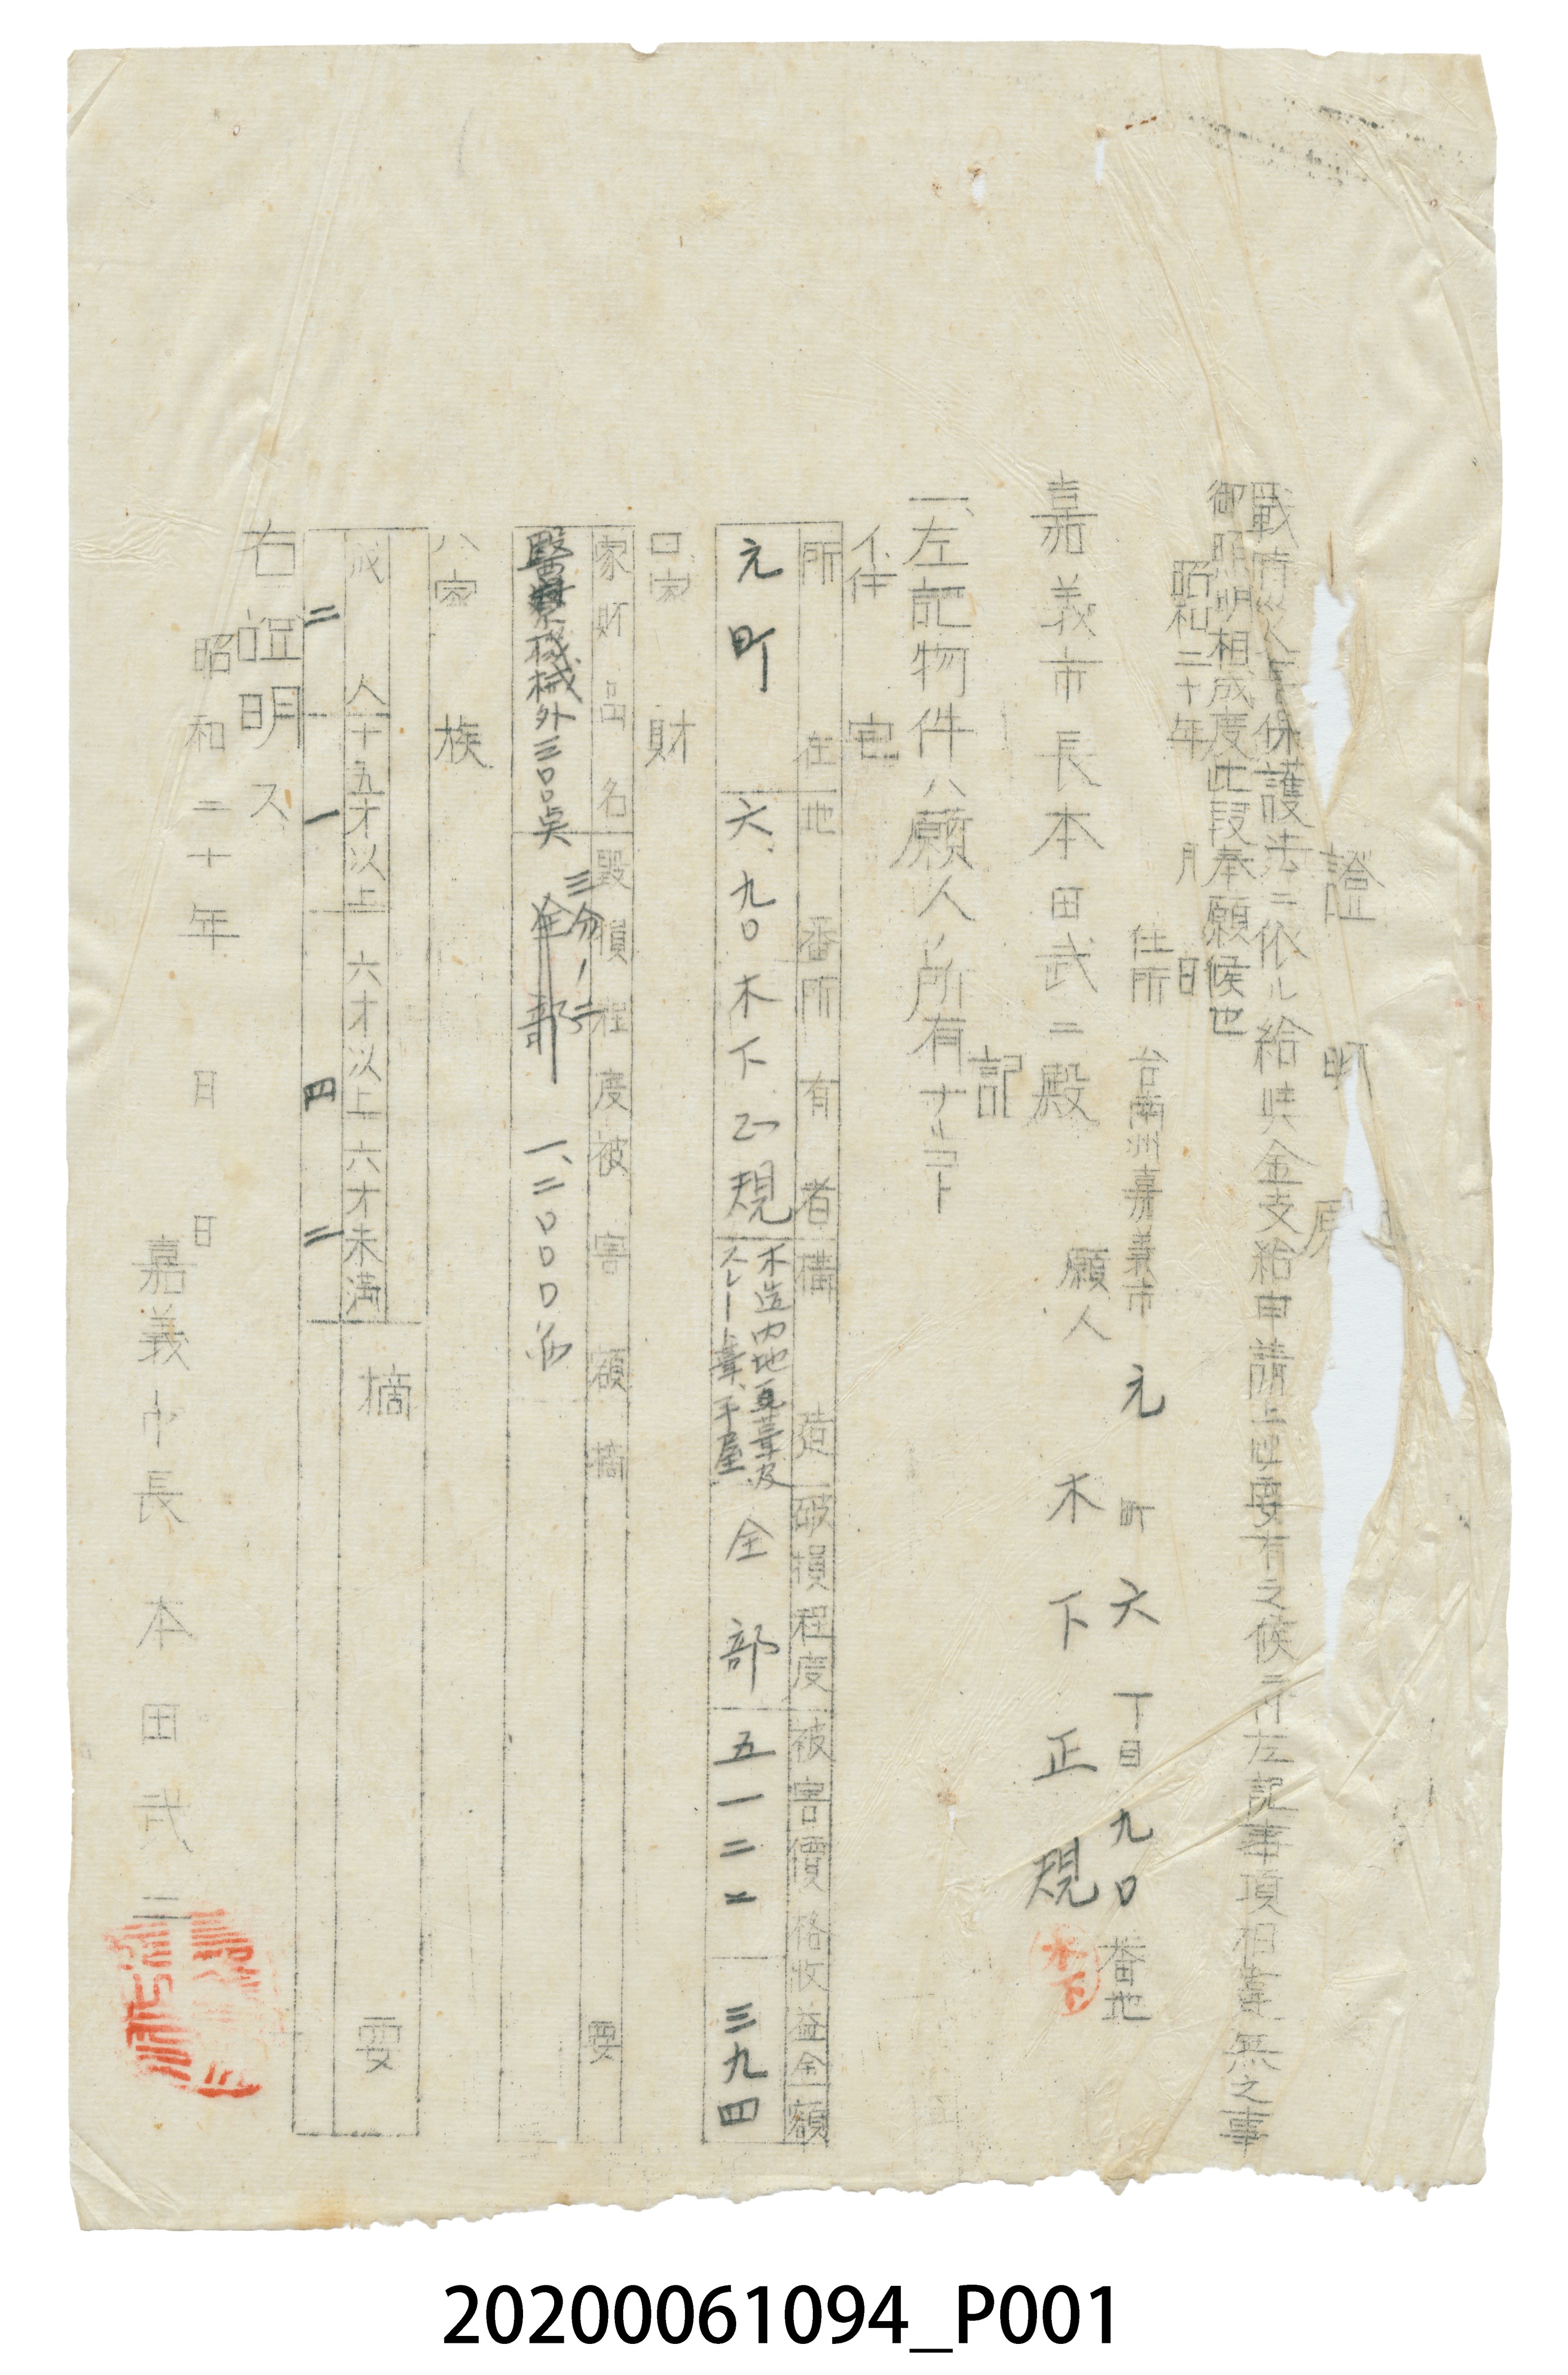 證 明 願
戰時災害保護法ニ依ル給与金支給申請上必要有之候ニ付左記事項相違無之事
御証明相成度此段奉願候也
昭和二十年 月 日
住所 台南州嘉義市 元 町 六 丁目 九〇 番地
願人 木下正規
木下
嘉義市長本田武二殿
記
一、左記物件ハ願人ノ所有ナルコト
イ、住 宅
所在地番 所有者 構造 破損程度 被害價格 收益金額
元町 六、九〇 木下正規 木造内地瓦葺及スレート葺平屋 全部 五一二二 三九四
ロ、家 財
家財品名 毀損程度 被害額 摘要
醫療機械外三口品点 全部 三分ノ二 一、二〇〇〇
ハ、家 族
六十五才以上 六才以上 六才未満 摘要
二 一 四 二
右證明ス
昭和二十年 月 日
嘉義市長 本田武二
20200061094_P001